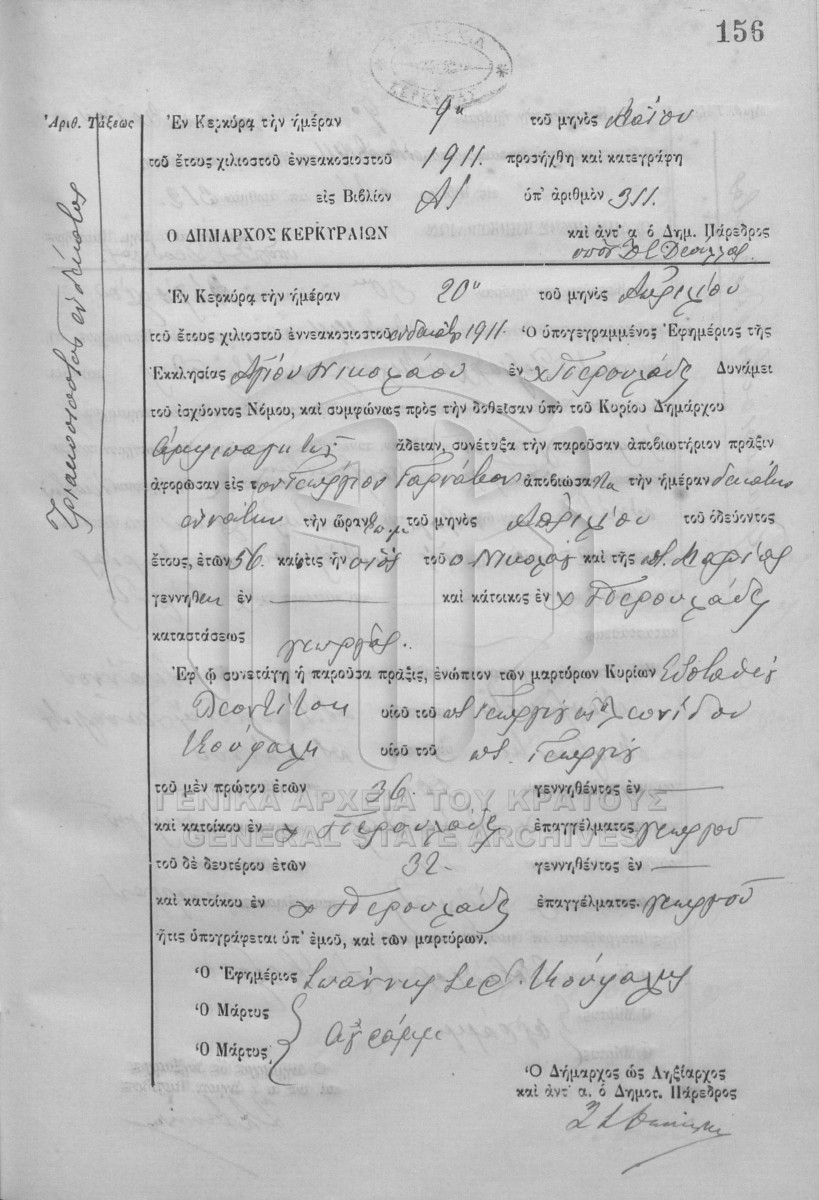 156
Ἀριθ. Τάξεως
Τριακοσιοστὸς ἑνδέκατος
Ἐν Κερκύρᾳ τὴν ἡμέραν 9ην τοῦ μηνὸς Μαΐου
τοῦ ἔτους χιλιοστοῦ ἐννεακοσιοστοῦ 1911. προσήχθη καὶ κατεγράφη
εἰς Βιβλίον Α' ὑπ' ἀριθμὸν 311.
Ο ΔΗΜΑΡΧΟΣ ΚΕΡΚΥΡΑΙΩΝ καὶ ἀντ' α ὁ Δημ. Πάρεδρος
Ἐν Κερκύρᾳ τὴν ἡμέραν 20ην τοῦ μηνὸς Ἀπριλίου
τοῦ ἔτους χιλιοστοῦ ἐννεακοσιοστοῦ ἑνδεκάτου 1911. Ὁ ὑπογεγραμμένος Ἐφημέριος τῆς
Ἐκκλησίας Ἁγίου Νικολάου ἐν χ. Περουλάδες Δυνάμει
τοῦ ἰσχύοντος Νόμου, καὶ συμφώνως πρὸς τὴν δοθεῖσαν ὑπὸ τοῦ Κυρίου Δημάρχου
ἄδειαν, συνέταξα τὴν παροῦσαν ἀποβιωτήριον πρᾶξιν
ἀφορῶσαν εἰς τὸν Γεώργιον ἀποβιώσαντα τὴν ἡμέραν δεκάτην
ἐννάτην τὴν ὥραν τοῦ μηνὸς Ἀπριλίου τοῦ ὁδεύοντος
ἔτους, ἐτῶν 56. καὶ ὅστις ἦν υἱὸς τοῦ Νικολάου καὶ τῆς Μαρίας
γεννηθεὶς ἐν — καὶ κάτοικος ἐν χ Περουλάδες
καταστάσεως γεωργός.
Ἐφ' ᾧ συνετάγη ἡ παροῦσα πρᾶξις, ἐνώπιον τῶν μαρτύρων Κυρίων Εὐσταθίου
Λεοντίτση υἱοῦ του ποτ. Γεωργίου καὶ Λεωνίδου
Κούφαλη υἱοῦ τοῦ ποτ. Γεωργίου
τοῦ μὲν πρώτου ἐτῶν 36. γεννηθέντος ἐν —
ΓΕΝΙΚΑ ΑΡΧΕΙΑ ΤΟΥ ΚΡΑΤΟΥΣ
καὶ κατοίκου ἐν χ Περουλάδες ἐπαγγέλματος γεωργοῦ
GENERAL STATE ARCHIVES
τοῦ δὲ δευτέρου ἐτῶν 32- γεννηθέντος ἐν —
καὶ κατοίκου ἐν χ Περουλάδες ἐπαγγέλματος. γεωργοῦ
ἥτις ὑπογράφεται ὑπ' ἐμοῦ, καὶ τῶν μαρτύρων.
Ὁ Ἐφημέριος Ἰωάννης Ἱερ. Κούφαλης
Ὁ Μάρτυς
Ἀγράμμ
Ὁ Μάρτυς
Ὁ Δήμαρχος ὡς Ληξίαρχος
καὶ ἀντ' α. ὁ Δημοτ. Πάρεδρος